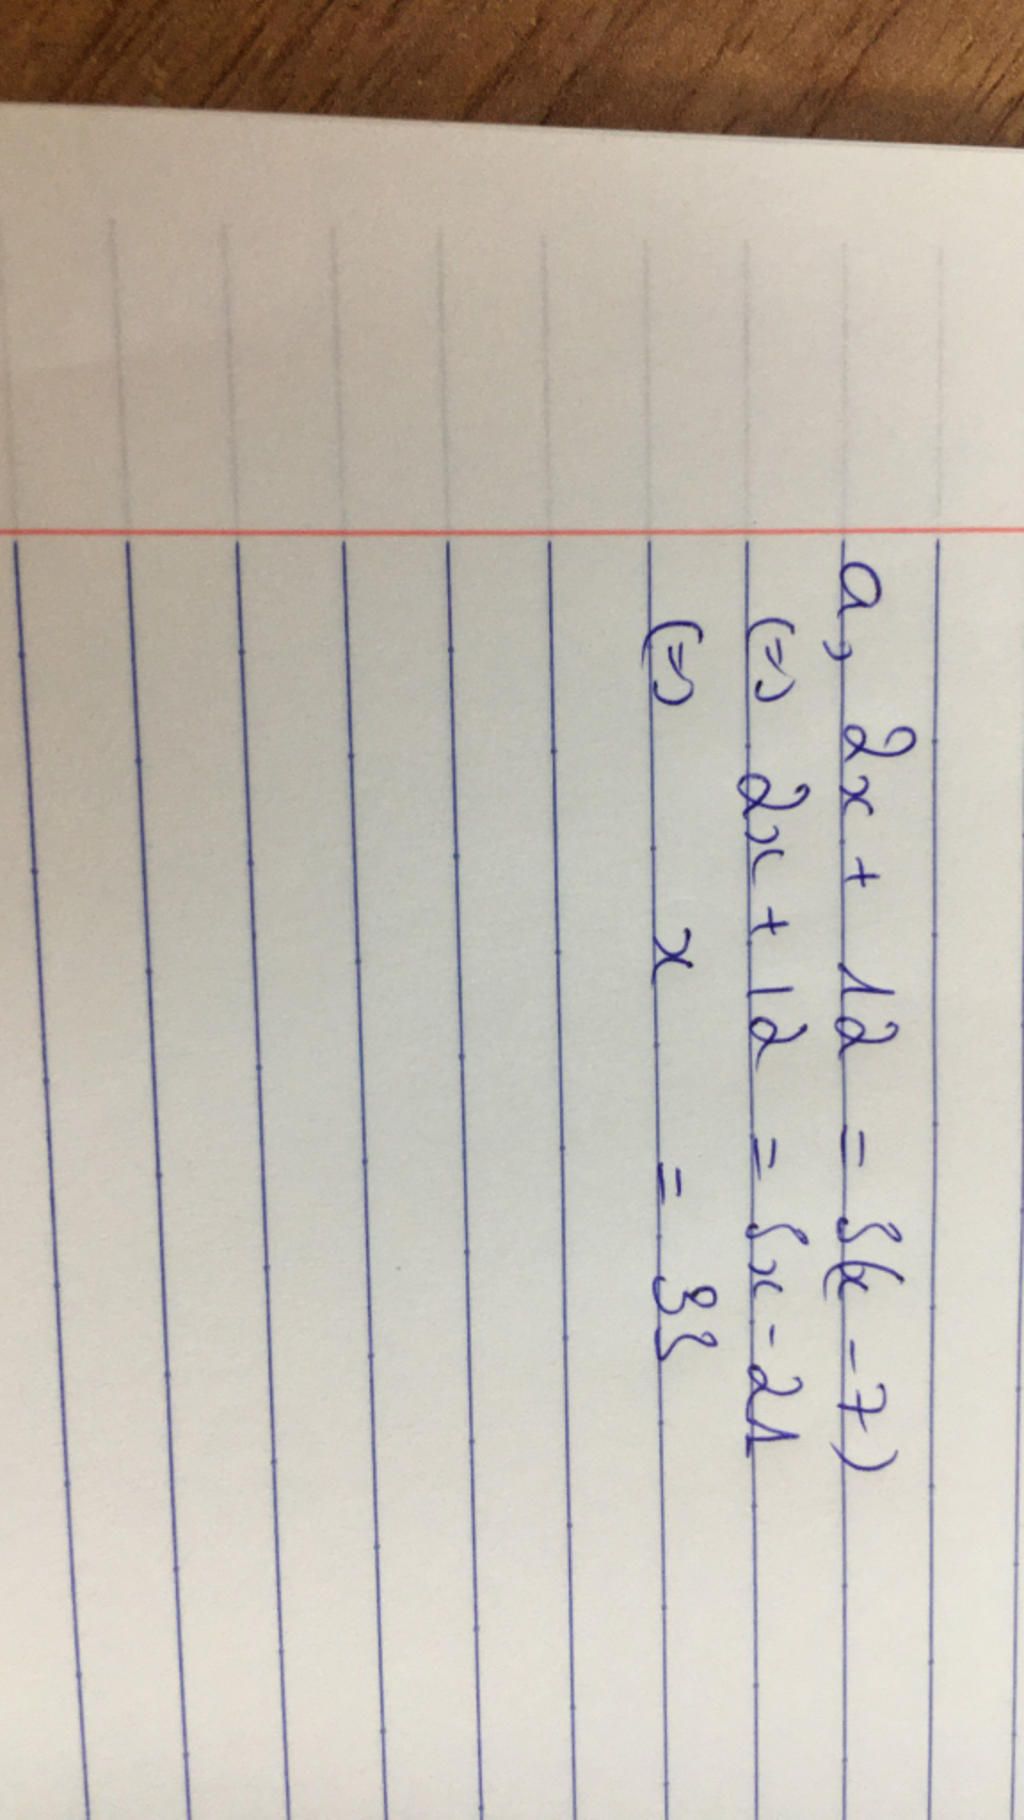 a, 2x + 12 = 3(x - 7)
(=) 2x + 12 = 3x - 21
(=) x = 33